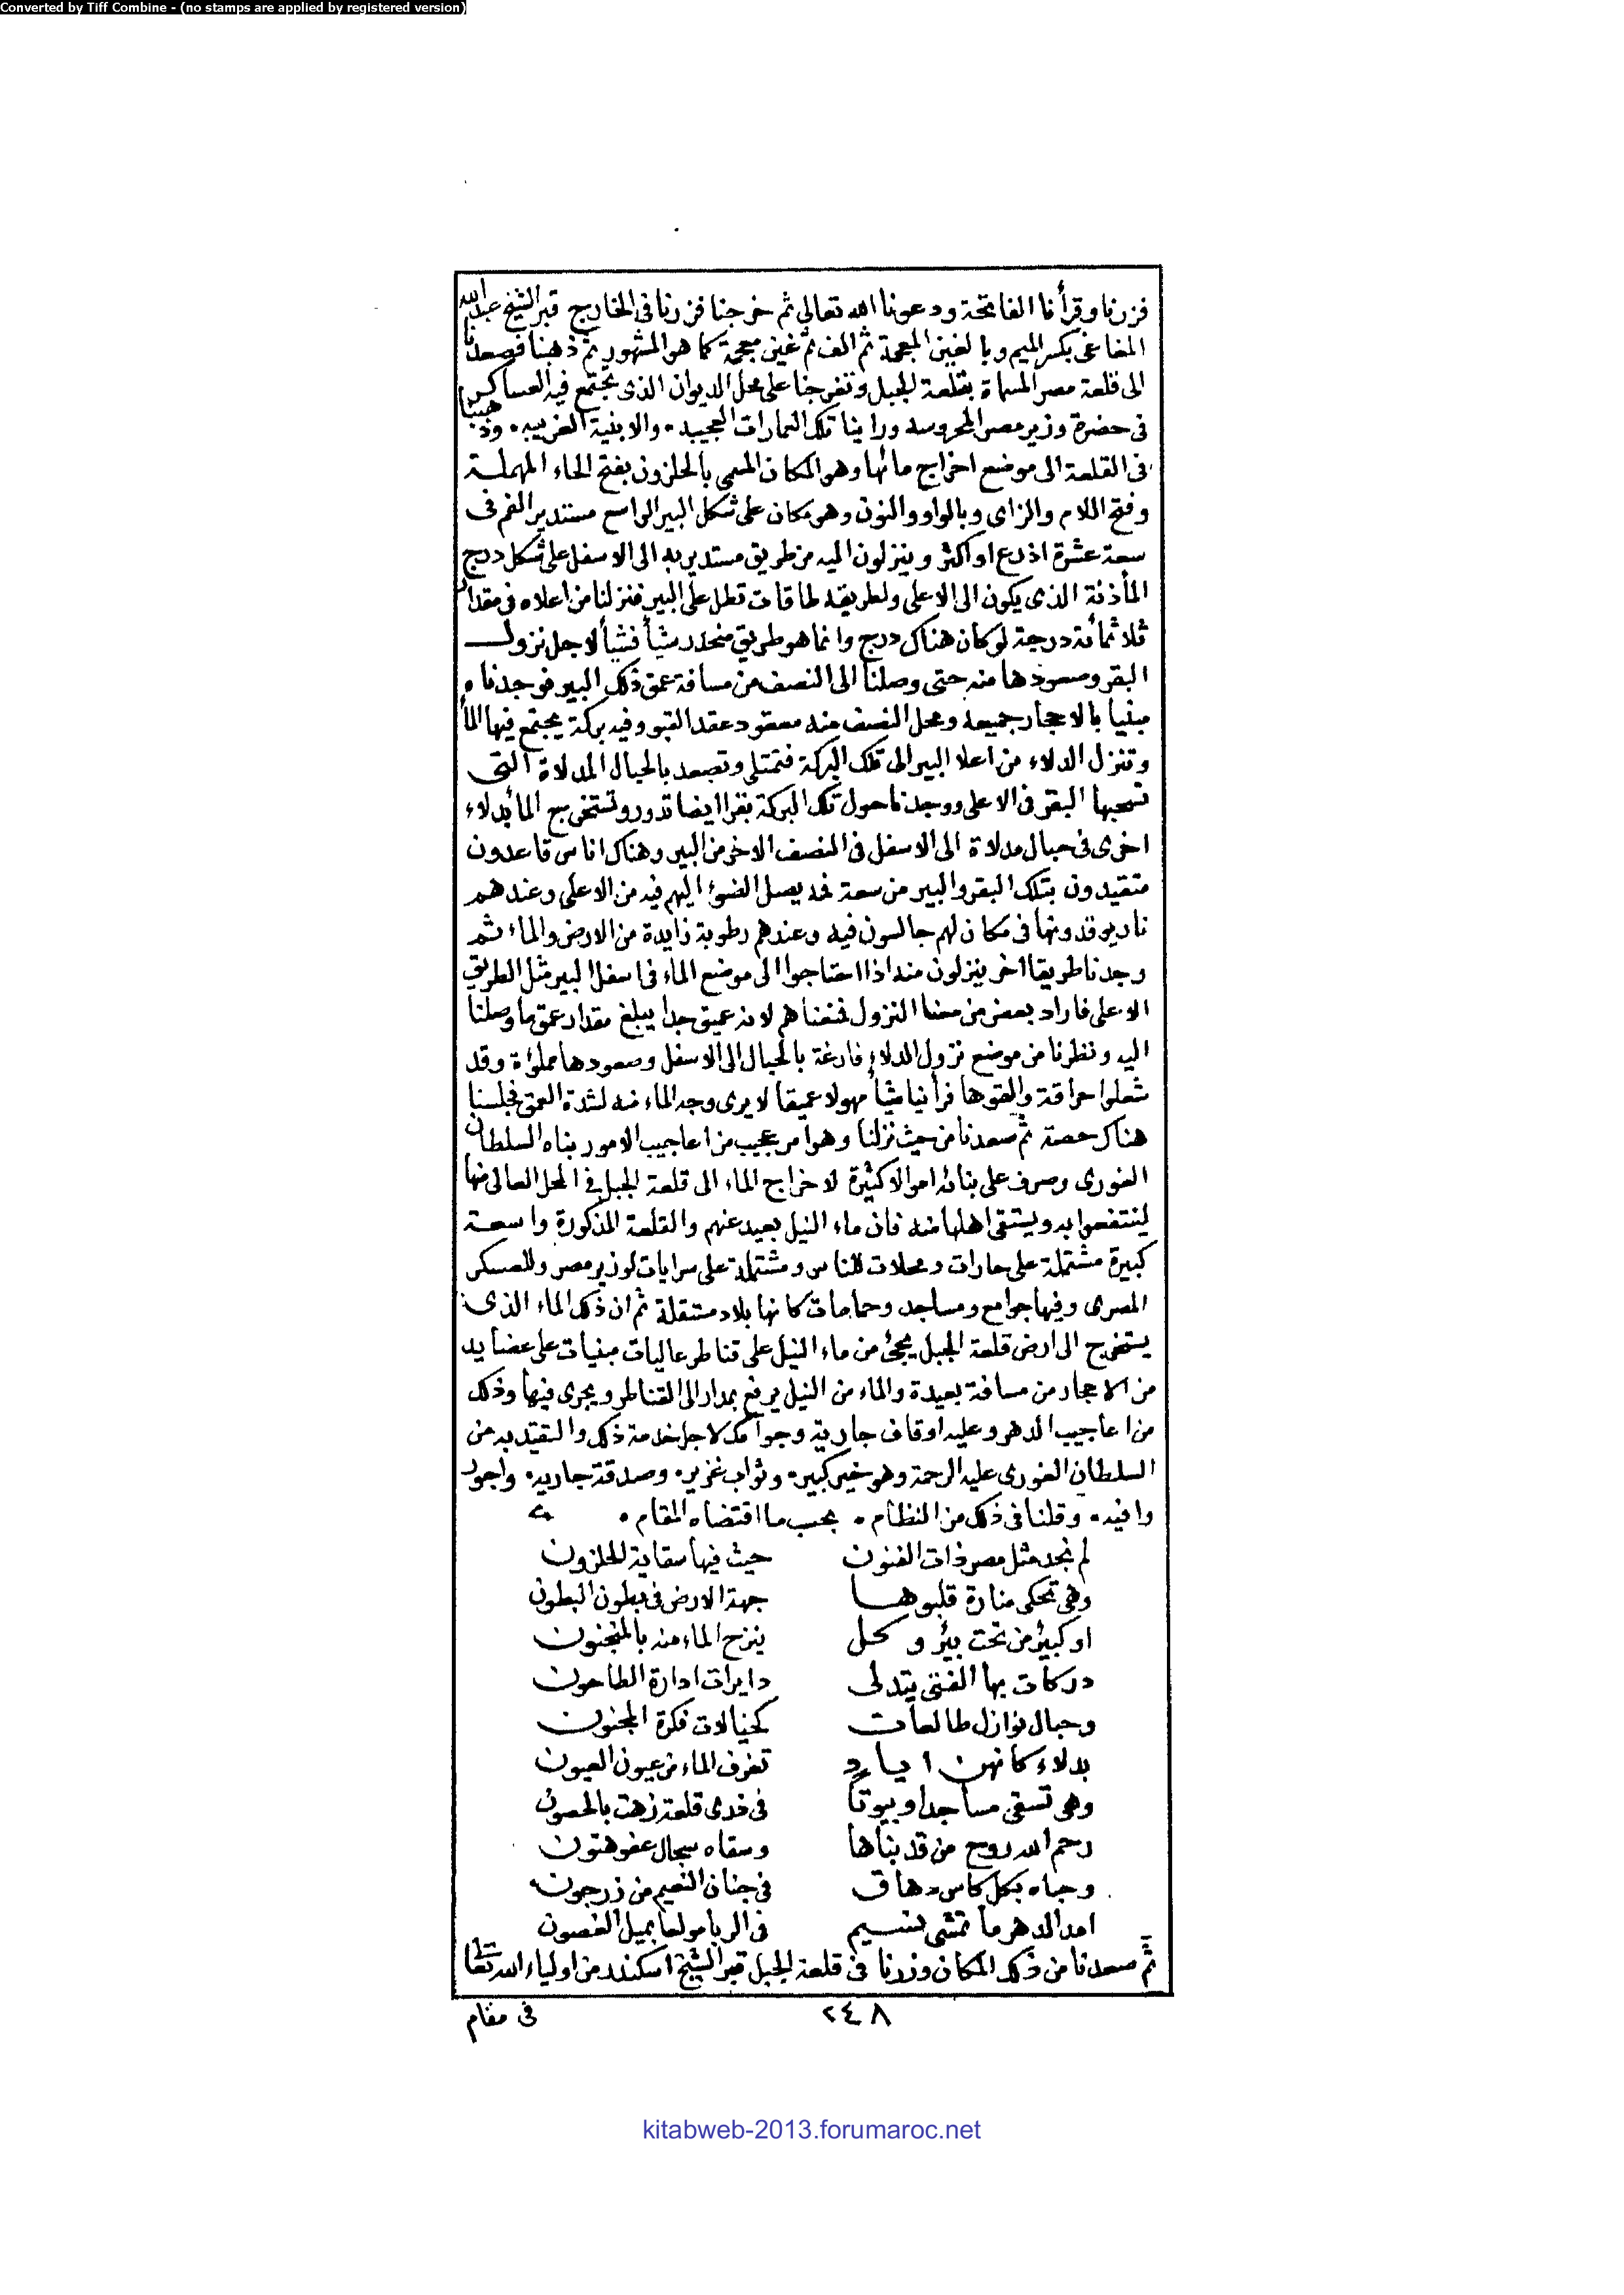 Converted by Tiff Combine - (no stamps are applied by registered version)
فزرنا وقرأنا الفاتحة ودعونا الله تعالى ثم خرجنا فزرنا فى الخارج قبر الشيخ عبد الله
المغاغى بكسر الميم وبالغين المعجمة ثم الف ثم غين معجمة كما هو المشهور ثم ذهبنا فصعدنا
الى قلعة مصر المسماة بقلعة الجبل وتفرجنا على محل الديوان الذى يجتمع فيه العساكر
فى حضرة وزير مصر المحروسه وراينا تلك العمارات العجيبه • والابنية الغريبه • وذهبنا
فى القلعة الى موضع اخراج مائها وهو المكان المسمى بالحلزون بفتح الحاء المهملة
وفتح اللام والزاى وبالواو والنون وهو مكان على شكل البير الواسع مستدير الفم فى
سعة عشرة اذرع او اكثر وينزلون اليه من طريق مستدير به الى الاسفل على شكل درج
المأذنة الذى يكون الى الاعلى ولطريقه طاقات تطل على البير فنزلنا من اعلاه فى مقدار
ثلاثمائة درجة لو كان هناك درج وانما هو طريق منحدر شيأ فشيأ لاجل نزول
البقر وصعودها منه حتى وصلنا الى النصف من مسافة عمق ذلك البير فوجدناه
مبنيا بالاحجار جميعه ومحل النصف منه معقود عقد القبو وفيه بركة يجتمع فيها الماء
وتنزل الدلاء من اعلا البير الى تلك البركة فتمتلى وتصعد بالحبال المدلاة التى
تسحبها البقر فى الاعلى ووجدنا حول تلك البركة بقرا ايضا تدور وتستخرج الماء بدلاء
اخرى فى حبال مدلاة الى الاسفل فى النصف الاخر من البير وهناك اناس قاعدون
متقيدون بتلك البقر والبير من سعة فمه يصل الضوء اليهم فيه من الاعلى وعندهم
نار يوقدونها فى مكان لهم جالسون فيه وعندهم رطوبة زايدة من الارض والماء ثم
وجدنا طريقا اخر ينزلون منه اذا احتاجوا الى موضع الماء فى اسفل البير مثل الطريق
الاعلى فاراد بعض من معنا النزول فمنعناهم لانه عميق جدا يبلغ مقدار عمق ما وصلنا
اليه ونظرنا من موضع نزول الدلاء فارغة بالحبال الى الاسفل وصعودها مملؤة وقد
شعلوا حراقة والقوها فرأينا شيأ مهولا عميقا لا يرى وجه الماء منه لشدة العمق فجلسنا
هناك حصة ثم صعدنا من حيث نزلنا وهو امر عجيب من اعاجيب الامور بناه السلطان
الغورى وصرف على بنائه اموالا كثيرة لاخراج الماء الى قلعة الجبل فى المحل العالى منها
لينتفعوا به ويستقى اهلها منه فان ماء النيل بعيد عنهم والقلعة المذكورة واسعة
كبيرة مشتملة على حارات ومحلات للناس ومشتملة على سرايات لوزير مصر وللعسكر
المصرى وفيها جوامع ومساجد وحمامات كانها بلاد مستقلة ثم ان ذلك الماء الذى
يستخرج الى ارض قلعة الجبل يجئ من ماء النيل على قناطر عاليات مبنيات على عضايد
من الاحجار من مسافة بعيدة والماء من النيل يرفع بمدار الى القناطر ويجرى فيها وذلك
من اعاجيب الدهر وعليه اوقاف جارية وجوامك لاجل خدمة ذلك والتقيد به من
السلطان الغورى عليه الرحمة وهو خير كبير • وثواب غزير • وصدقة جاريه • واجور
وافيه • وقلنا فى ذلك من النظام • بحسب ما اقتضاه المقام •
لم نجد مثل مصر ذات الفنون حيث فيها سقاية الحلزون
وهى تحكى منارة قلبوها جهة الارض فى بطون البطون
او كبير من تحت بئر وكل ينزح الماء منه بالمنجنون
دركات بها الفتى يتدلى دايرات ادارة الطاحون
وحبال نوازل طالعات كخيالات فكرة المجنون
بدلاء كانهن اياد تغرف الماء من عيون العيون
وهى تسقى مساجدا وبيوتا فى ذرى قلعة زهت بالحصون
رحم الله روح من قد بناها وسقاه سجال عفو هتون
وحباه بكل كاس دهاق فى جنان النعيم من زرجون
امد الدهر ما تمشى نسيم فى الربا مولعا بميل الغصون
ثم صعدنا من ذلك المكان وزرنا فى قلعة الجبل قبر الشيخ اسكندر من اولياء الله تعالى
٢٤٨
فى مقام
kitabweb-2013.forumaroc.net